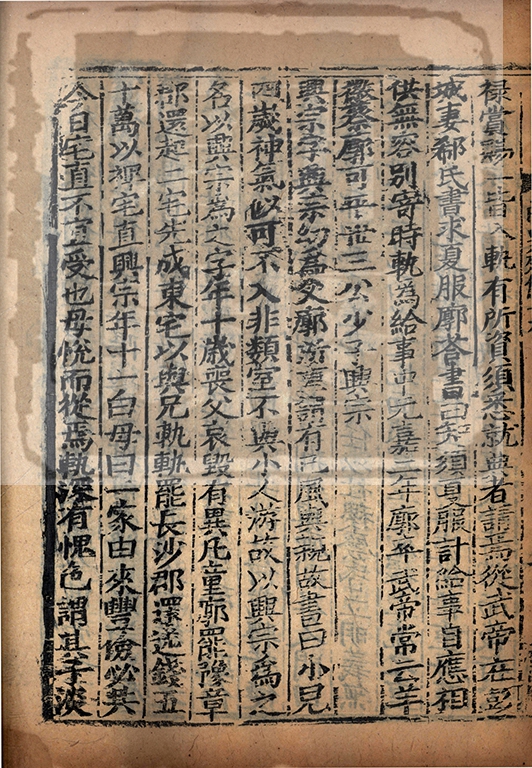 祿賞賜一皆入軌有所資須悉就典者請焉從武帝在彭
城妻郗氏書求夏服廓荅書曰知須夏服計給事自應相
供無容別寄時軌為給事中元嘉二年廓卒武帝常云羊
徽蔡廓可平世三公少子興宗
興宗字興宗幼為父廓所重謂有己風與親故書曰小兒
四歲神氣似可不入非類室不與小人游故以興宗為之
名以興宗為之字年十歲喪父哀毀有異凡童廓罷豫章
郡還起二宅先成東宅以與兄軌軌罷長沙郡還送錢五
十萬以裨宅直興宗年十一白母曰一家由來豐儉必共
今日宅直不宜受也母恱而從焉軌深有愧色謂其子淡